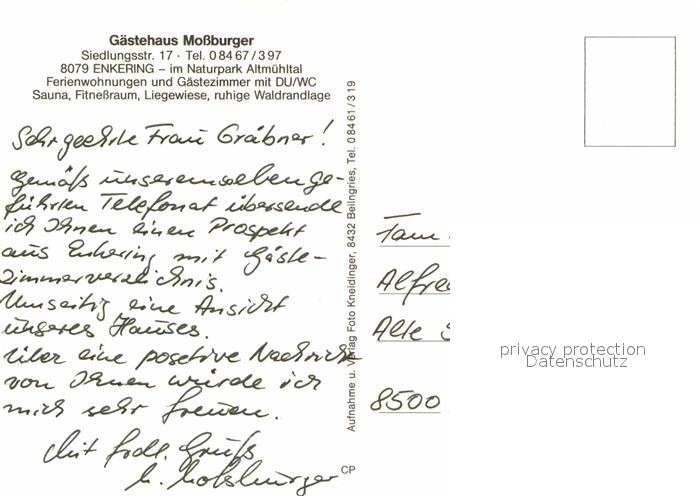 Gästehaus Moßburger
Siedlungsstr. 17 · Tel. 0 84 67 / 3 97
8079 ENKERING – im Naturpark Altmühltal
Ferienwohnungen und Gästezimmer mit DU/WC
Sauna, Fitneßraum, Liegewiese, ruhige Waldrandlage
Sehr geehrte Frau Gräbner!
gemäß unserem soeben ge-
führten Telefonat übersende
ich Ihnen einen Prospekt
aus Enkering mit Gäste-
zimmerverzeichnis.
Umseitig eine Ansicht
unseres Hauses.
Über eine posetive Nachricht
von Ihnen würde ich
mich sehr freuen.
Mit frdl. Gruß
M. Moßburger
CP
Aufnahme u. Verlag Foto Kneidinger, 8432 Beilngries, Tel. 0 84 61 / 3 19
Fam.
Alfred
Alte S
8500
privacy protection
Datenschutz